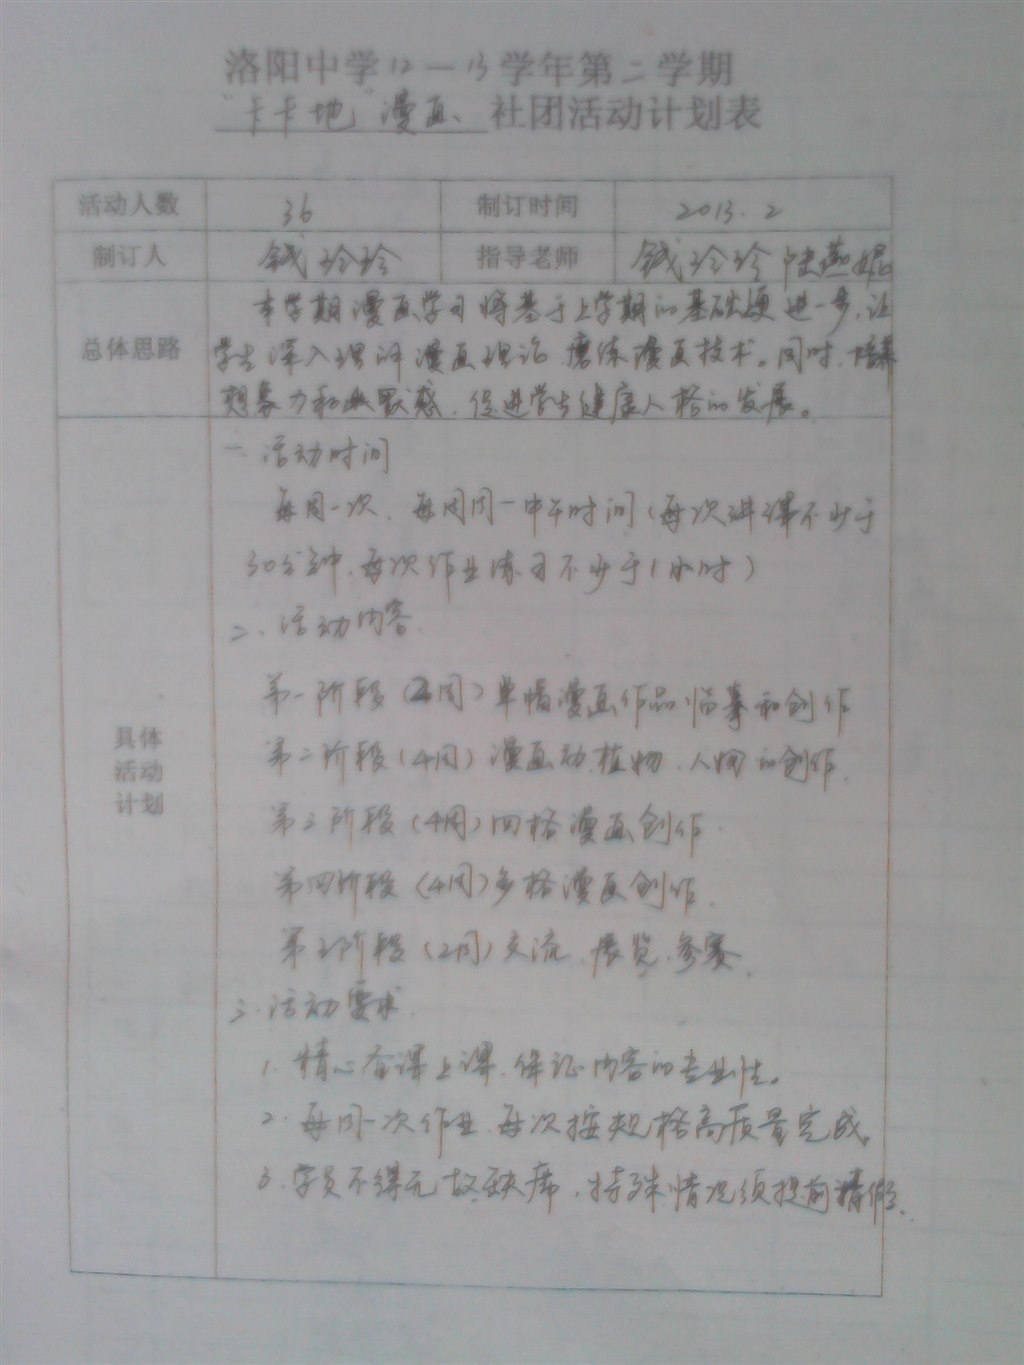 洛阳中学12—13学年第二学期
“卡卡地”漫画 社团活动计划表
活动人数 36 制订时间 2013.2
制订人 钱玲玲 指导老师 钱玲玲 陆燕妮
总体思路
本学期漫画学习将基于上学期的基础更进一步,让
学生深入理解漫画理论,磨练漫画技术。同时,培养
想象力和幽默感,促进学生健康人格的发展。
具体
活动
计划
一.活动时间
每周一次,每周周一中午时间(每次讲课不少于
30分钟,每次作业练习不少于1小时)
二、活动内容.
第一阶段(2周)单幅漫画作品临摹和创作
第二阶段(4周)漫画动、植物、人物的创作.
第三阶段(4周)四格漫画创作.
第四阶段(4周)多格漫画创作.
第五阶段(2周)交流、展览、参赛.
三.活动要求.
1.精心备课上课,保证内容的专业性。
2.每周一次作业,每次按规格高质量完成。
3.学员不得无故缺席,特殊情况须提前请假.